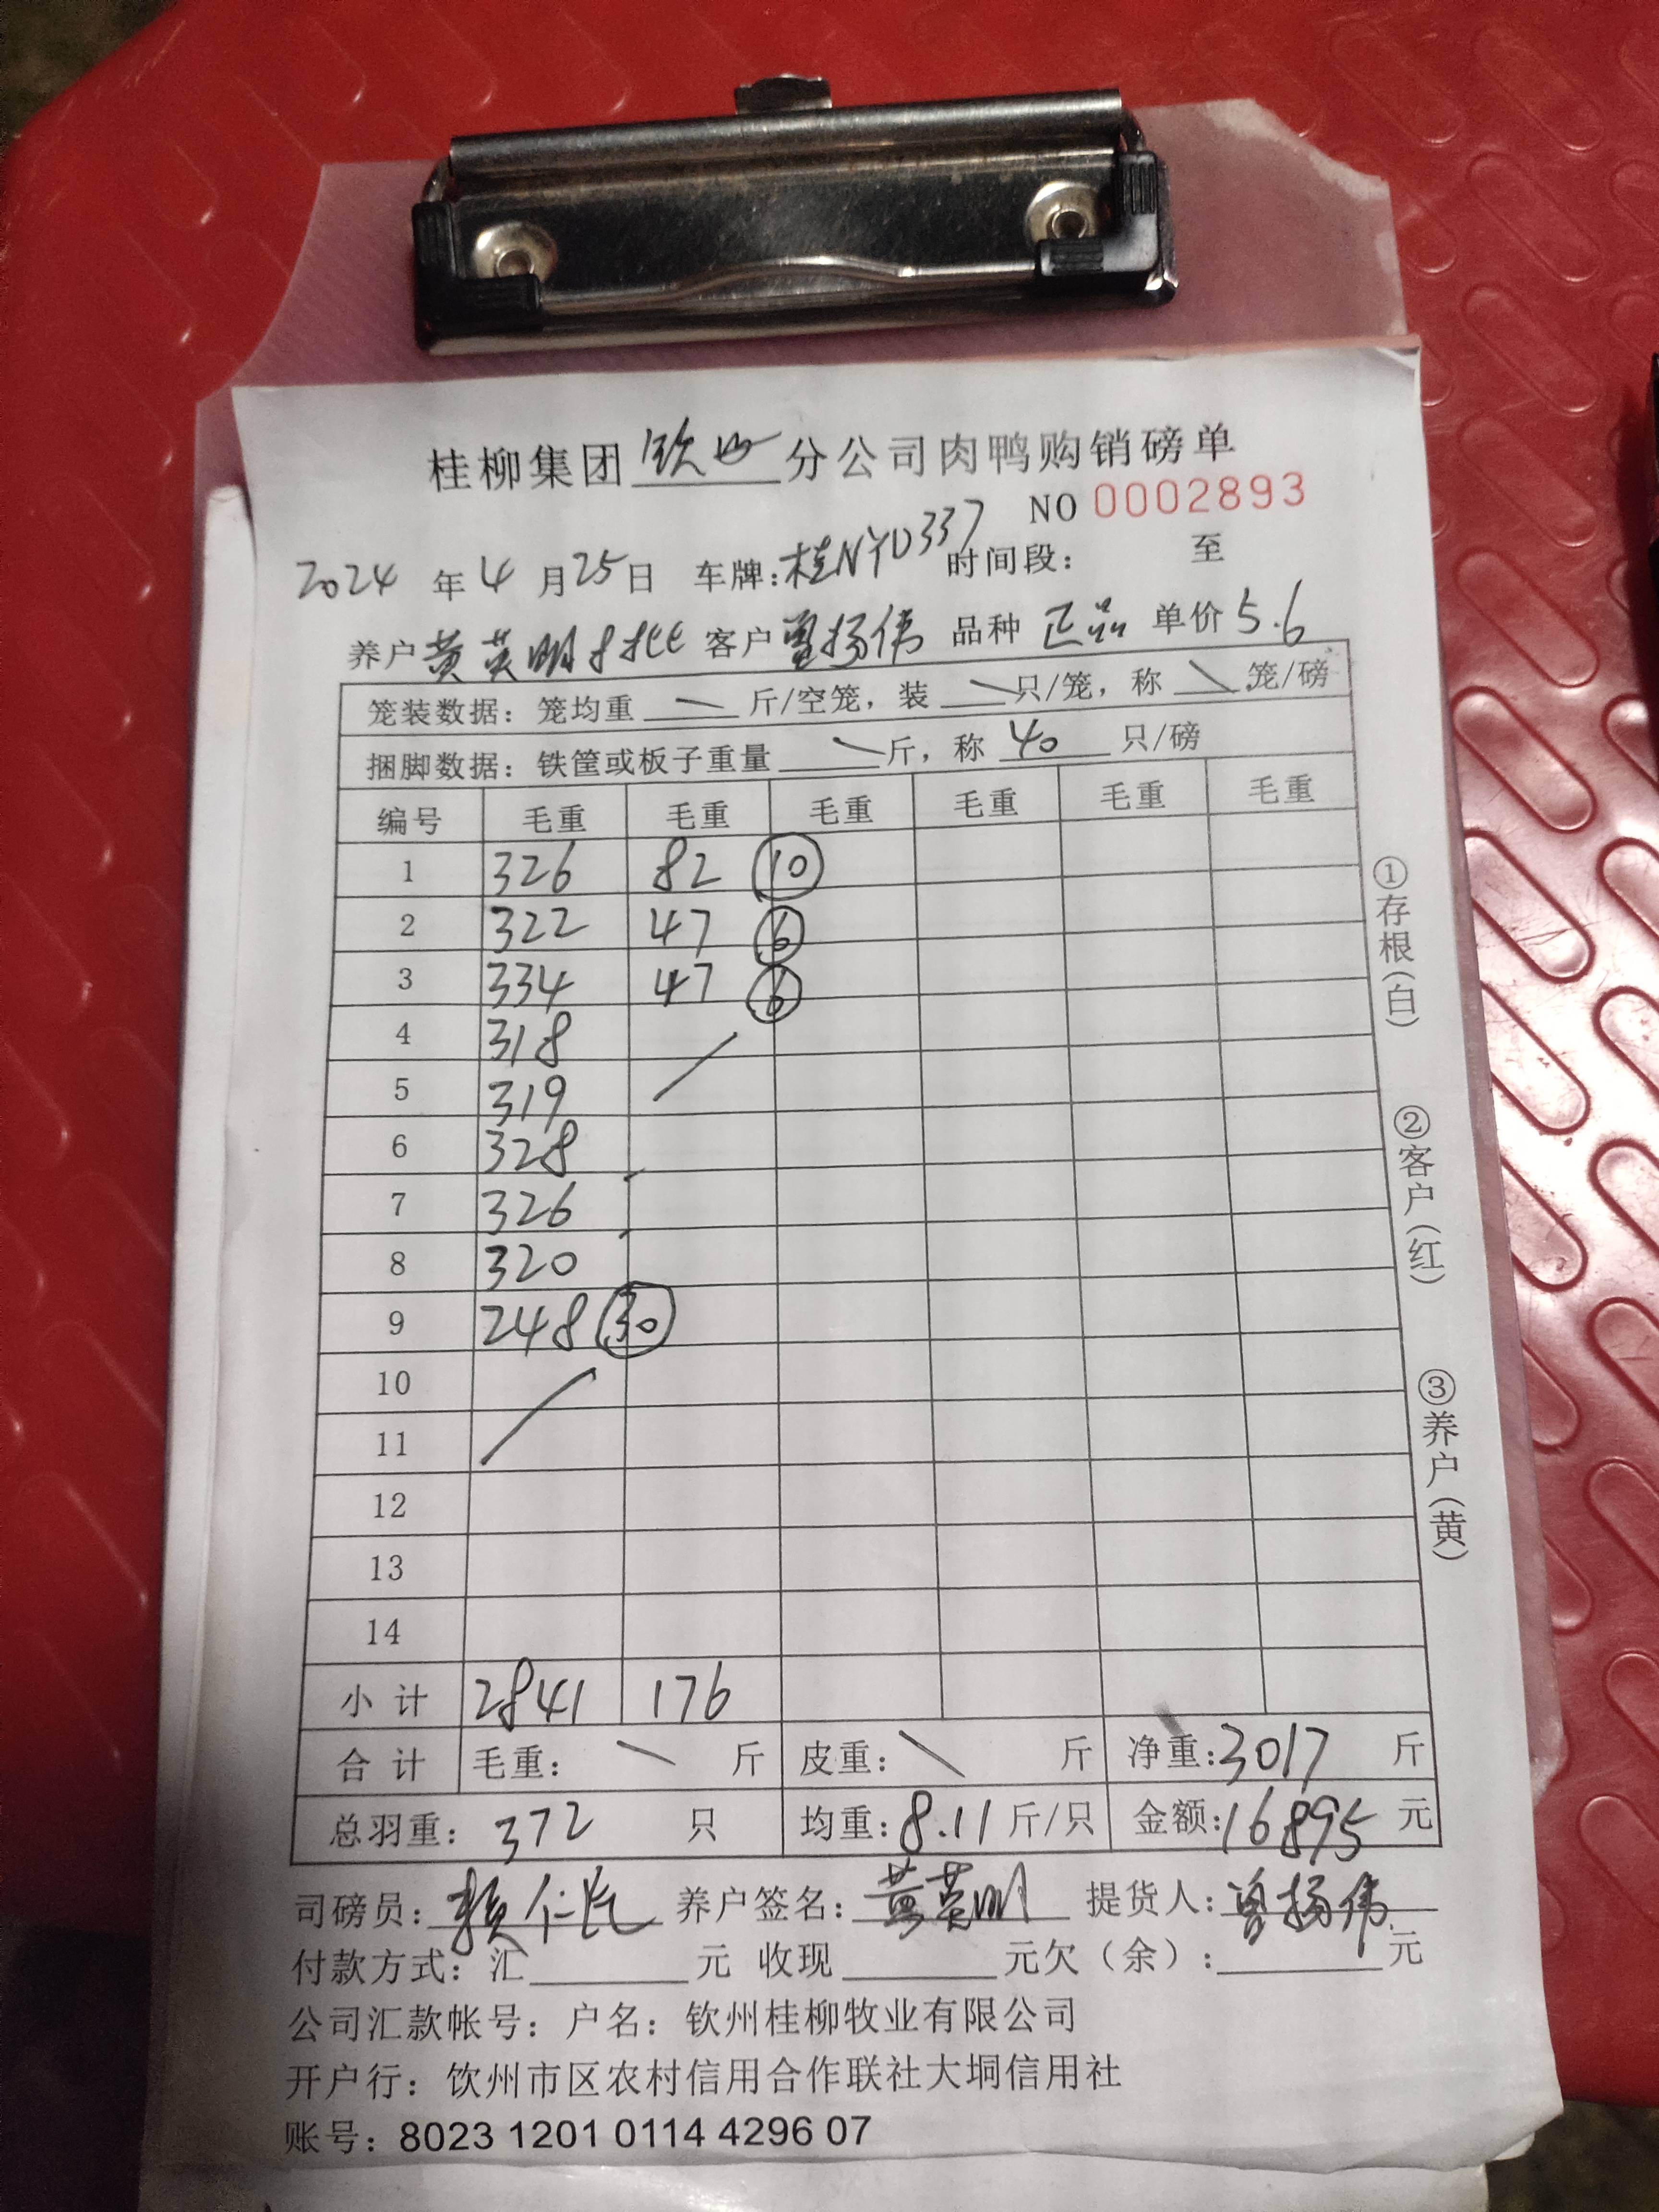 桂柳集团钦州分公司肉鸭购销磅单
NO 0002893
2024年4月25日 车牌:桂NYD337 时间段: 至
养户黄英明 客户曾扬伟 品种 正品 单价5.6
笼装数据：笼均重 斤/空笼，装 只/笼，称 笼/磅
捆脚数据：铁筐或板子重量 斤，称 40 只/磅
编号 毛重 毛重 毛重 毛重 毛重 毛重
1 326 82 ⑩
2 322 47 ⑥
3 334 47 ⑥
4 318
5 319
6 328
7 326
8 320
9 248 ㉚
10
11
12
13
14
小计 2841 176
合计 毛重： 斤 皮重： 斤 净重:3017 斤
总羽重： 372 只 均重:8.11斤/只 金额:16895元
司磅员: 赖 养户签名: 黄英明 提货人: 曾扬伟
付款方式：汇 元 收现 元欠（余）: 元
公司汇款帐号：户名：钦州桂柳牧业有限公司
开户行：饮州市区农村信用合作联社大垌信用社
账号：8023 1201 0114 4296 07
①存根(白)
②客户(红)
③养户(黄)